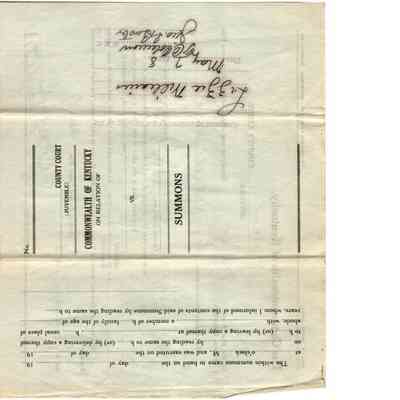 No.
COUNTY COURT
JUVENILE
COMMONWEALTH OF KENTUCKY
ON RELATION OF
VS.
SUMMONS
Lizzie
May 7 8
The within summons came to hand on the day of 19
at o'clock M., and was executed on the day of 19
on by reading the same to h (or) by delivering a copy thereof
to h (or) by leaving a copy thereof at h usual place of
abode, with a member of h family over the age of
years, whom I informed of the contents of said Summons by reading the same to h